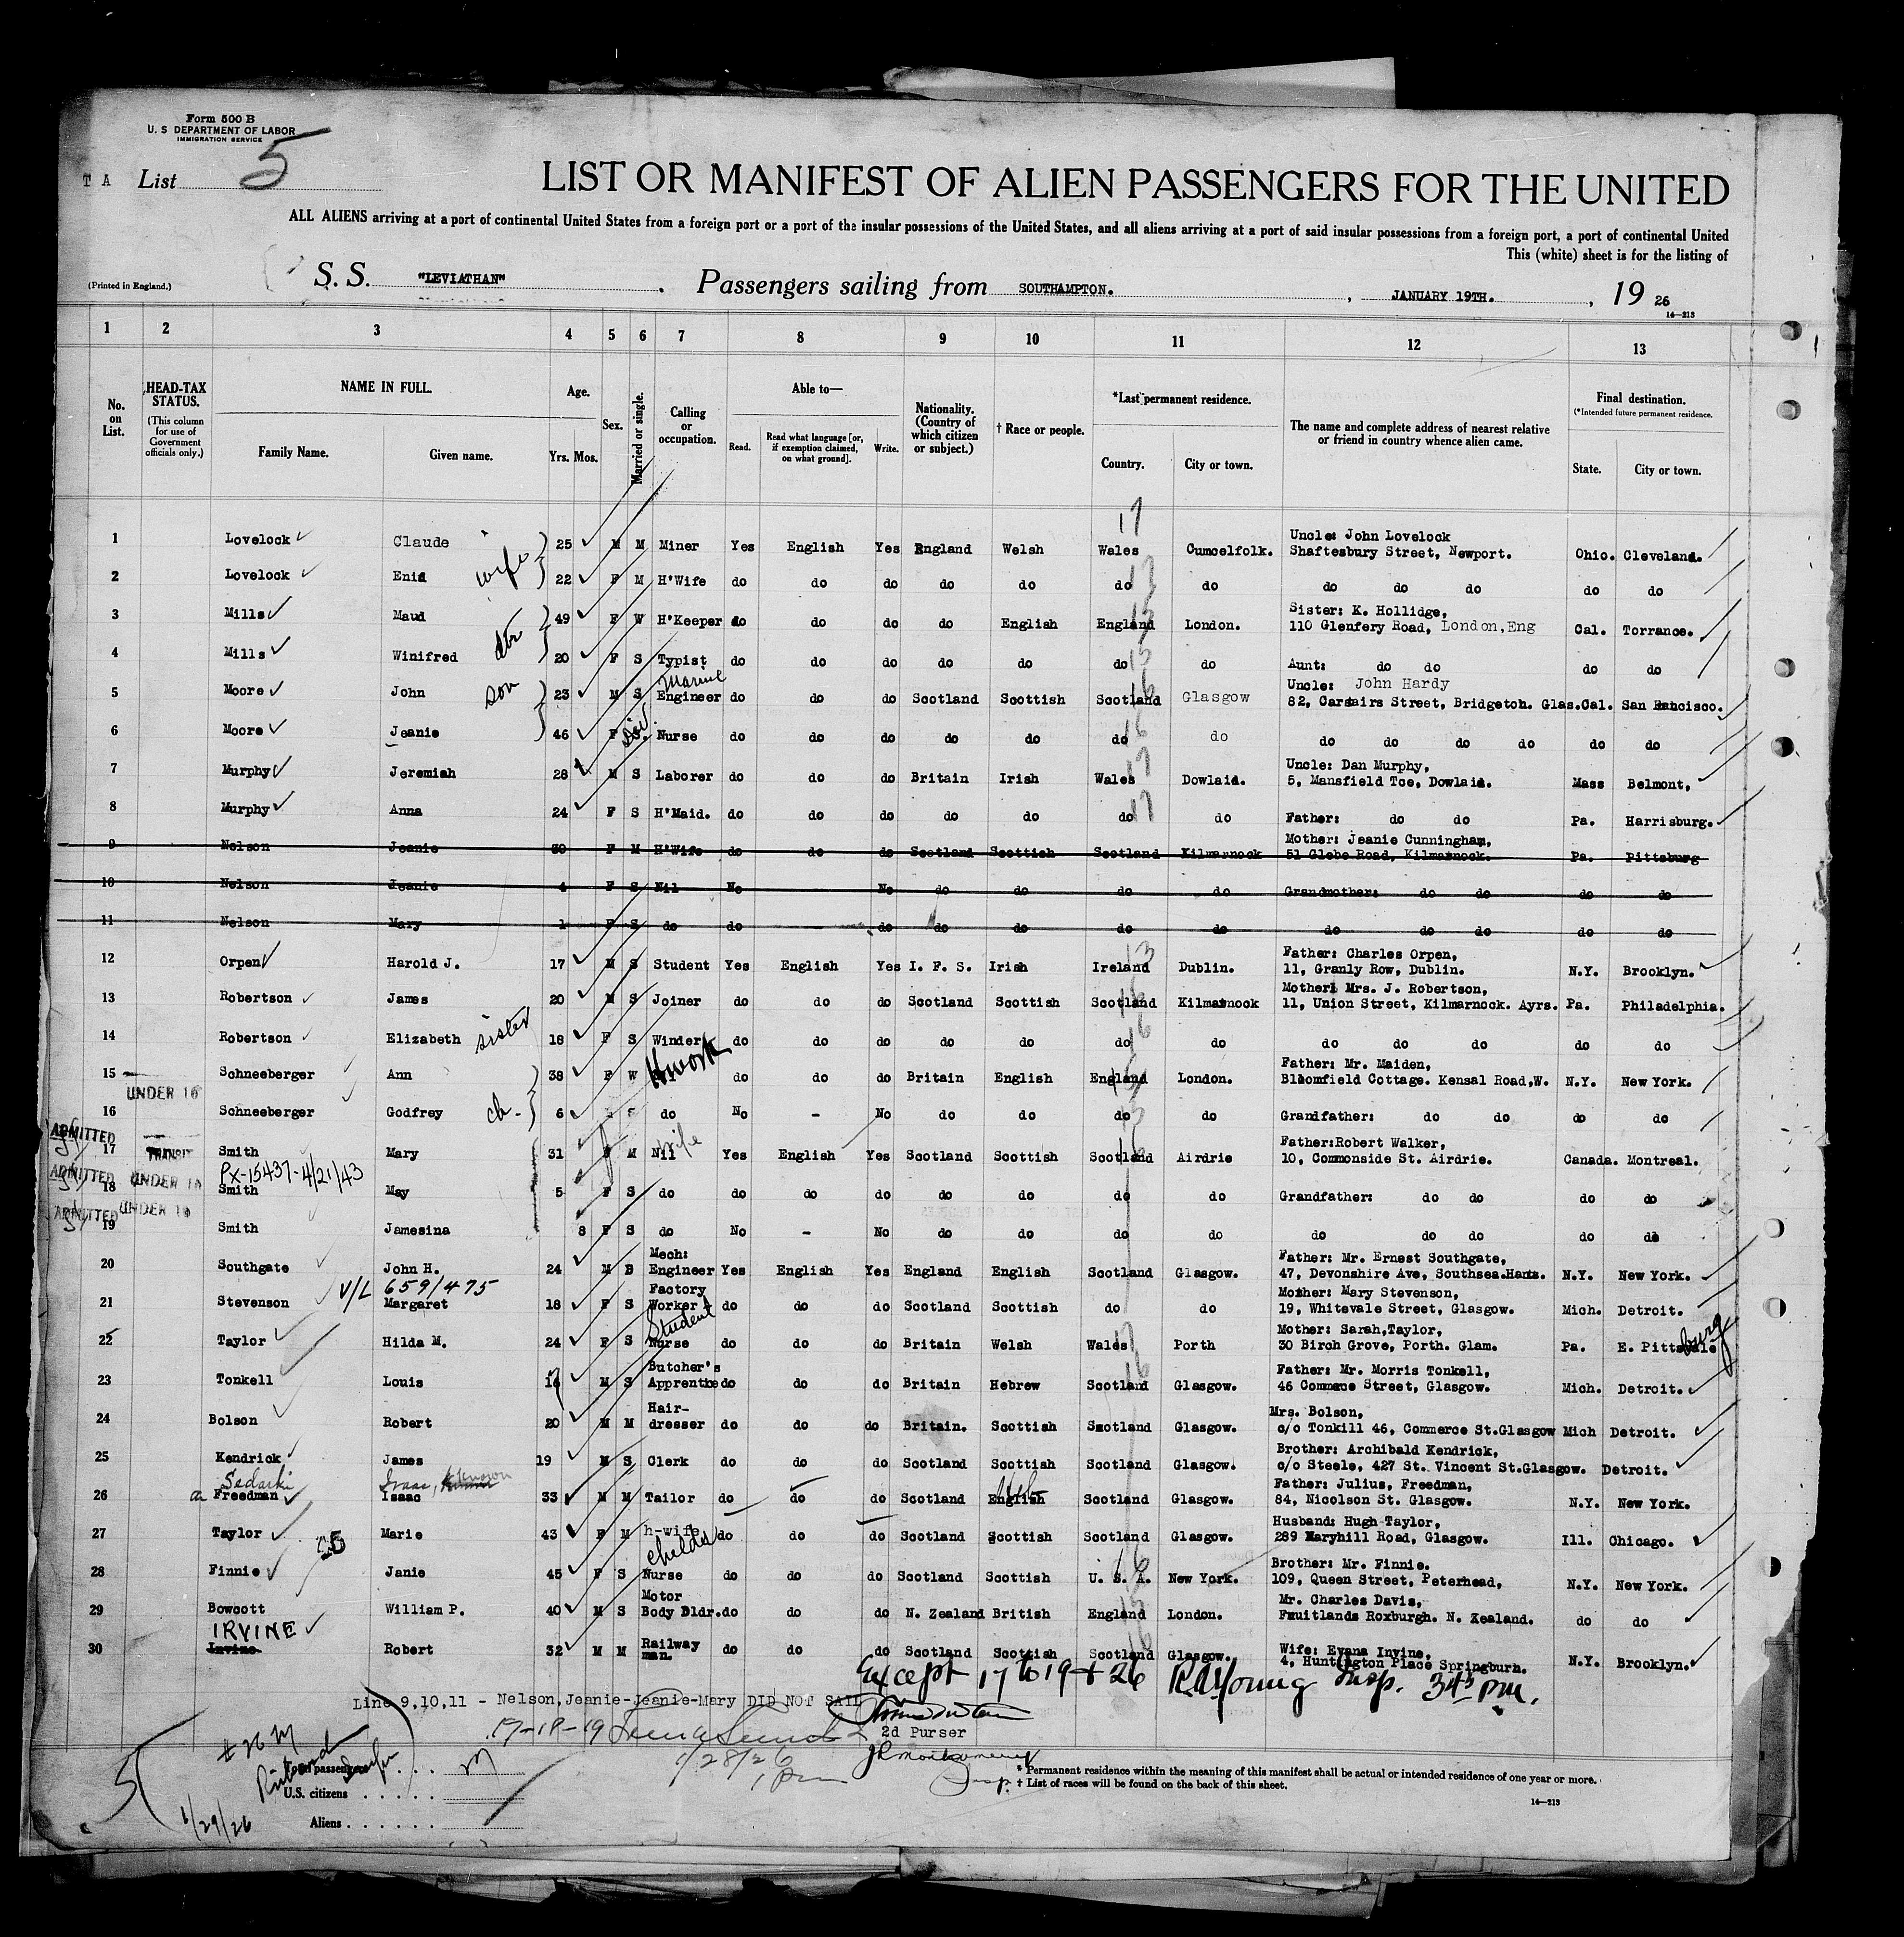 Form 500 B
U. S DEPARTMENT OF LABOR
IMMIGRATION SERVICE
T A List 5
LIST OR MANIFEST OF ALIEN PASSENGERS FOR THE UNITED
ALL ALIENS arriving at a port of continental United States from a foreign port or a port of the insular possessions of the United States, and all aliens arriving at a port of said insular possessions from a foreign port, a port of continental United
This (white) sheet is for the listing of
(Printed in England.) S. S. "LEVIATHAN" . Passengers sailing from SOUTHAMPTON. , JANUARY 19TH. , 19 26
14—213
1 2 3 4 5 6 7 8 9 10 11 12 13
No. on List. HEAD-TAX STATUS. (This column for use of Government officials only.) NAME IN FULL. Family Name. Given name. Age. Yrs. Mos. Sex. Married or single. Calling or occupation. Able to— Read. Read what language [or, if exemption claimed, on what ground]. Write. Nationality. (Country of which citizen or subject.) † Race or people. *Last permanent residence. Country. City or town. The name and complete address of nearest relative or friend in country whence alien came. Final destination. (*Intended future permanent residence. State. City or town.
17
1 Lovelock Claude 25 M M Miner Yes English Yes England Welsh Wales Cumcelfolk. Uncle: John Lovelock Shaftesbury Street, Newport. Ohio. Cleveland.
2 Lovelock Enid wife 22 F M H'Wife do do do do do do do do do do do do
3 Mills Maud 49 F W H'Keeper do do do do English England London. Sister: K. Hollidge, 110 Glenfery Road, London,Eng Cal. Torrance.
4 Mills Winifred dtr 20 F S Typist do do do do do do do Aunt: do do do do
5 Moore John son 23 M S Marine Engineer do do do Scotland Scottish Scotland Glasgow Uncle: John Hardy 82, Carstairs Street, Bridgeton. Glas. Cal. San Francisco.
6 Moore Jeanie 46 F Div. Nurse do do do do do do do do do do do do do
7 Murphy Jeremiah 28 M S Laborer do do do Britain Irish Wales Dowlaid. Uncle: Dan Murphy, 5, Mansfield Tce, Dowlaid. Mass Belmont,
8 Murphy Anna 24 F S H'Maid. do do do do do do do Father: do do Pa. Harrisburg.
9 Nelson Jeanie 30 F M H'Wife do do do Scotland Scottish Scotland Kilmarnock Mother: Jeanie Cunningham, 51 Glebe Road, Kilmarnock. Pa. Pittsburg
10 Nelson Jeanie 4 F S Nil No No do do do do Grandmother: do do do do
11 Nelson Mary 1 F S do do - do do do do do do do do do do
12 Orpen Harold J. 17 M S Student Yes English Yes I. F. S. Irish Ireland Dublin. Father: Charles Orpen, 11, Granly Row, Dublin. N.Y. Brooklyn.
13 Robertson James 20 M S Joiner do do do Scotland Scottish Scotland Kilmarnock Mother: Mrs. J. Robertson, 11, Union Street, Kilmarnock. Ayrs. Pa. Philadelphia.
14 Robertson Elizabeth sister 18 F S Winder do do do do do do do do do do do do
15 Schneeberger Ann 38 F W Hwork do do do Britain English England London. Father: Mr. Maiden, Bloomfield Cottage. Kensal Road,W. N.Y. New York.
UNDER 16
16 Schneeberger Godfrey ch- 6 M S do No - No do do do do Grandfather: do do do do
ADMITTED
17 TRANSIT Smith Mary 31 F M Nil wife Yes English Yes Scotland Scottish Scotland Airdrie Father:Robert Walker, 10, Commonside St. Airdrie. Canada. Montreal.
ADMITTED UNDER 16 Px-15437-4/21/43
18 Smith May 5 F S do do do do do do do do Grandfather: do do do do
ADMITTED UNDER 16
19 Smith Jamesina 8 F S do No - No do do do do do do do do do
20 Southgate John H. 24 M S Mech: Engineer Yes English Yes England English Scotland Glasgow. Father: Mr. Ernest Southgate, 47, Devonshire Ave, Southsea.Hants. N.Y. New York.
V/L 659/475
21 Stevenson Margaret 18 F S Factory Worker do do do Scotland Scottish do do Mother: Mary Stevenson, 19, Whitevale Street, Glasgow. Mich. Detroit.
22 Taylor Hilda M. 24 F S Student Nurse do do do Britain Welsh Wales Porth Mother: Sarah,Taylor, 30 Birch Grove, Porth. Glam. Pa. E. Pittsburg
23 Tonkell Louis 16 M S Butcher's Apprentice do do do Britain Hebrew Scotland Glasgow. Father: Mr. Morris Tonkell, 46 Commece Street, Glasgow. Mich. Detroit.
24 Bolson Robert 20 M M Hair- dresser do do do Britain. Scottish Scotland Glasgow. Mrs. Bolson, c/o Tonkill 46, Commerce St.Glasgow Mich Detroit.
25 Kendrick James 19 M S Clerk do do do Scotland Scottish Scotland Glasgow. Brother: Archibald Kendrick, c/o Steele, 427 St. Vincent St.Glasgow. Detroit.
26 Freedman Isaac 33 M M Tailor do do do Scotland English Heb Scotland Glasgow. Father: Julius, Freedman, 84, Nicolson St. Glasgow. N.Y. New York.
27 Taylor Marie 43 F M h-wife do do do Scotland Scottish Scotland Glasgow. Husband: Hugh Taylor, 289 Maryhill Road, Glasgow. Ill. Chicago.
28 Finnie Janie 45 F S Childs Nurse do do do Scotland Scottish U. S. A. New York. Brother: Mr. Finnie. 109, Queen Street, Peterhead, N.Y. New York.
29 Bowcott William P. 40 M S Motor Body Bldr. do do do N. Zealand British England London. Mr. Charles Davis, Fruitlands Roxburgh. N. Zealand. do do
IRVINE
30 Irvine Robert 32 M M Railway man. do do do Scotland Scottish Scotland Glasgow. Wife: Evana Invine, 4, Huntington Place Springburn. N.Y. Brooklyn.
Except 17 to 19 + 26 R.A.Young Insp. 345 pm.
Line 9,10,11 - Nelson,Jeanie-Jeanie-Mary DID NOT SAIL
17-18-19
2d Purser
1/28/26 1 Pm
JR Montgomery Insp.
Total passengers . . .
U.S. citizens . . . . .
Aliens . . . . . .
1/29/26
* Permanent residence within the meaning of this manifest shall be actual or intended residence of one year or more.
† List of races will be found on the back of this sheet.
14—213